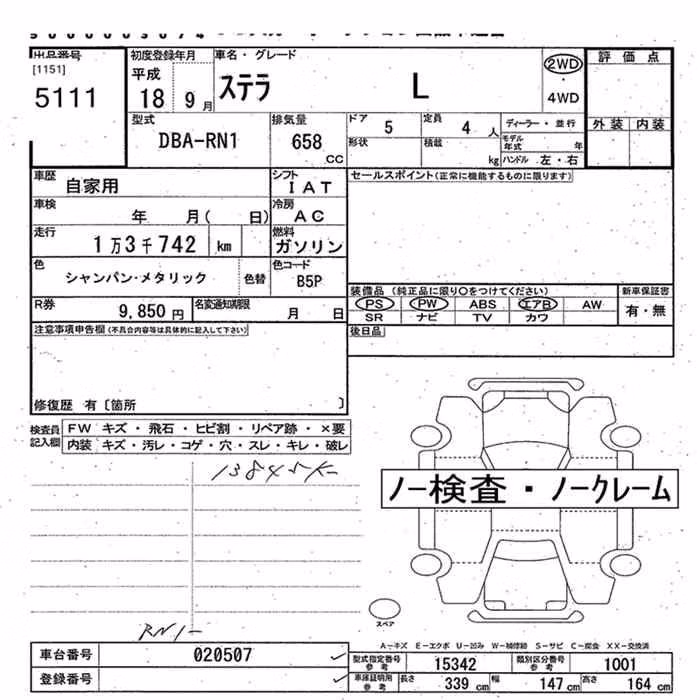 出品番号 初度登録年月 車名・グレード 評価点
[1151] 平成 2WD
5111 18 9月 ステラ L 4WD
型式 排気量 ドア 5 定員 4 人 ディーラー・並行 外装 内装
DBA-RN1 658 CC 形状 積載 kg モデル年式 年
ハンドル 左・右
車歴 自家用 シフト IAT セールスポイント(正常に機能するものに限ります)
車検 年 月( 日) 冷房 AC
走行 1万3千742 km 燃料 ガソリン
色 シャンパン・メタリック 色替 色コード B5P
装備品 (純正品に限り○をつけてください) 新車保証書
R券 9,850円 名変通知期限 月 日 PS PW ABS エアB AW 有・無
SR ナビ TV カワ
注意事項申告欄(不具合内容等は具体的に記入して下さい) 後日品
修復歴 有〔箇所 〕
検査員記入欄 FW キズ・飛石・ヒビ割・リペア跡・×要
内装 キズ・汚レ・コゲ・穴・スレ・キレ・破レ
ノー検査・ノークレーム
スペア
RN1-
A-キズ E-エクボ U-凹み W-補修跡 S-サビ C-腐食 XX-交換済
車台番号 020507 型式指定番号参考 15342 類別区分番号参考 1001
登録番号 車庫証明用参考 長さ 339 cm 幅 147 cm 高さ 164 cm